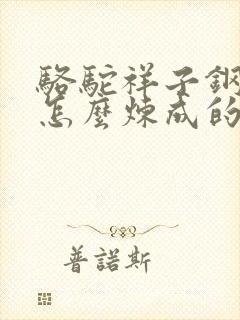 駱駝祥子鋼
怎麼煉成的
普諾斯